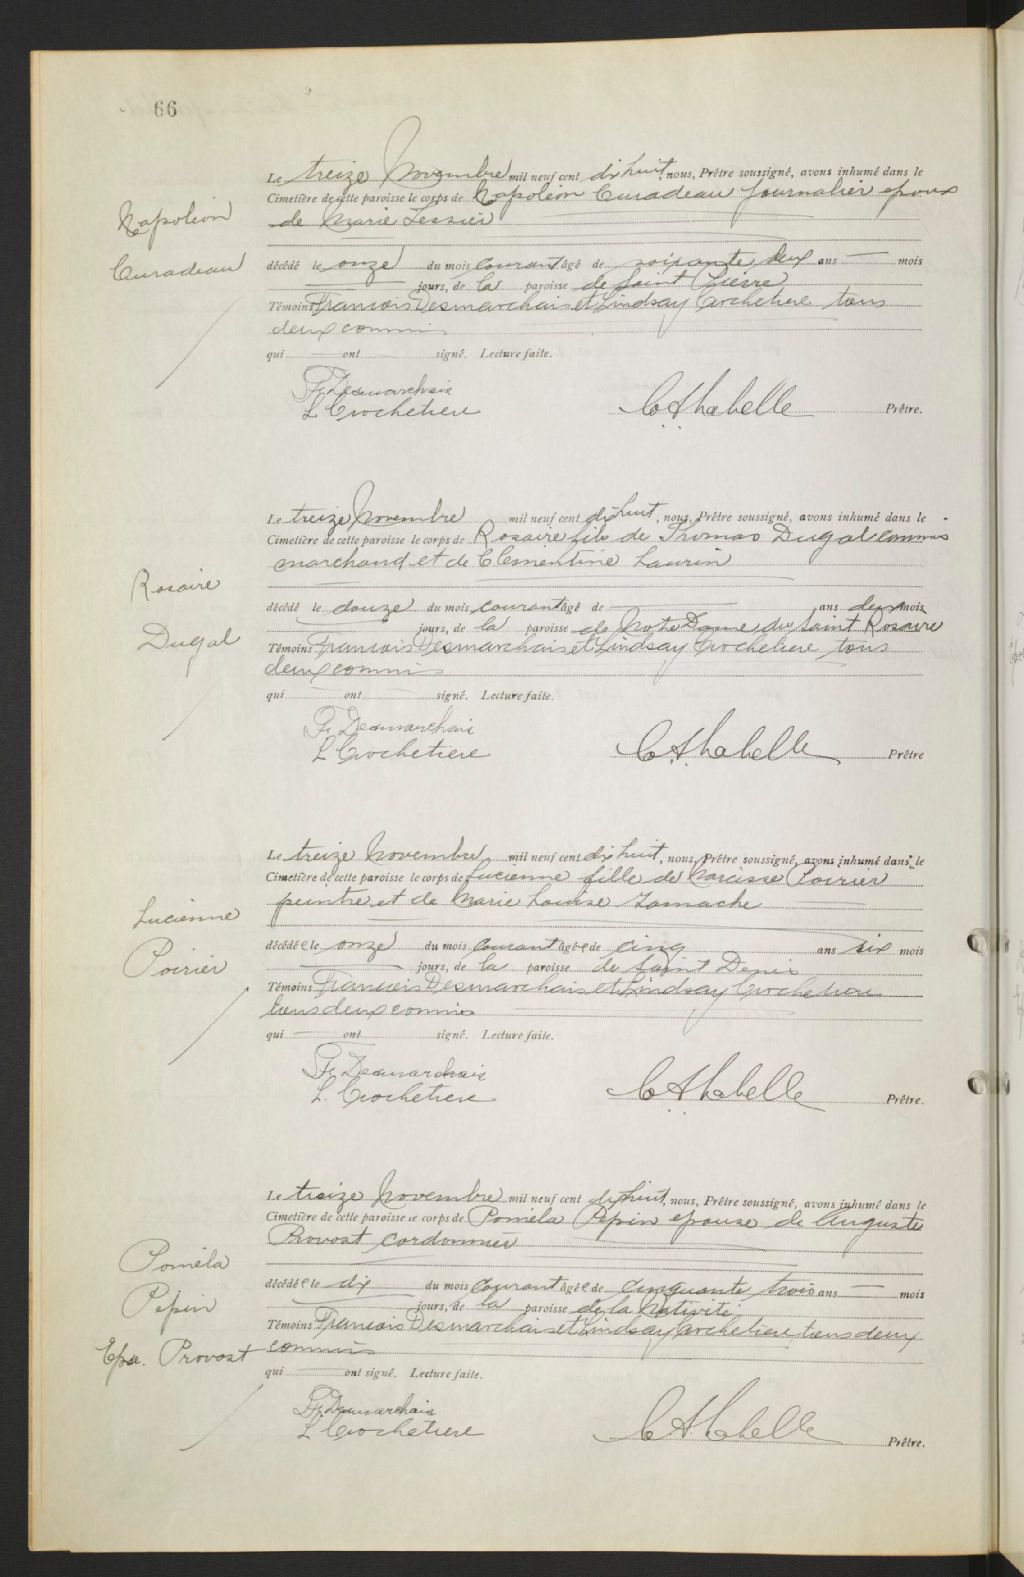 66
Le treize Novembre mil neuf cent dixhuit, nous, Prêtre soussigné, avons inhumé dans le
Cimetière de cette paroisse le corps de Napoléon Curadeau Journalier epoux
Napoléon
de Marie Tessier
Curadeau
décédé le onze du mois courant âgé de soixante deux ans — mois
jours, de la paroisse de Saint Pierre
Témoins Francois Desmarchais et Lindsay Crochetiere tous
deux commis
qui — ont signé. Lecture faite.
Fr. Desmarchais
L. Crochetiere
C A Labelle Prêtre.
Le treize Novembre mil neuf cent dixhuit, nous, Prêtre soussigné, avons inhumé dans le
Cimetière de cette paroisse le corps de Rosaire fils de Thomas Dugal commis
marchand et de Clementine Laurin
Rosaire
décédé le douze du mois courant âgé de — ans deux mois
Dugal
jours, de la paroisse de Notre Dame du Saint Rosaire
Témoins Francois Desmarchais et Lindsay Crochetiere tous
deux commis
qui — ont signé. Lecture faite.
Fr. Desmarchais
L Crochetiere
C A Labelle Prêtre
Le treize Novembre mil neuf cent dixhuit, nous, Prêtre soussigné, avons inhumé dans le
Cimetière de cette paroisse le corps de Lucienne fille de Narcisse Poirier
peintre et de Marie Louise Lamache
Lucienne
décédée le onze du mois courant âgée de cinq ans six mois
Poirier
jours, de la paroisse de Saint Denis
Témoins Francois Desmarchais et Lindsay Crochetiere
tous deux commis
qui — ont signé. Lecture faite.
Fr. Desmarchais
L. Crochetiere
C A Labelle Prêtre.
Le treize Novembre mil neuf cent dixhuit, nous, Prêtre soussigné, avons inhumé dans le
Cimetière de cette paroisse le corps de Poméla Pepin epouse de Auguste
Provost cordonnier
Poméla
décédée le dix du mois courant âgée de cinquante trois ans — mois
Pepin
jours, de la paroisse de la Nativité
Témoins Francois Desmarchais et Lindsay Crochetiere tous deux
Epse. Provost
commis
qui — ont signé. Lecture faite.
Fr. Desmarchais
L Crochetiere
C A Labelle Prêtre.